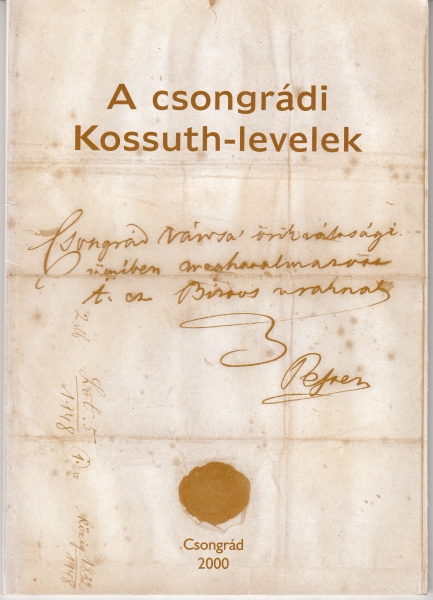 A csongrádi
Kossuth-levelek
Csongrád Városa örökváltsági
ügyében meghatalmazott
t. cz Biztos uraknak
Pesten
Csongrád
2000